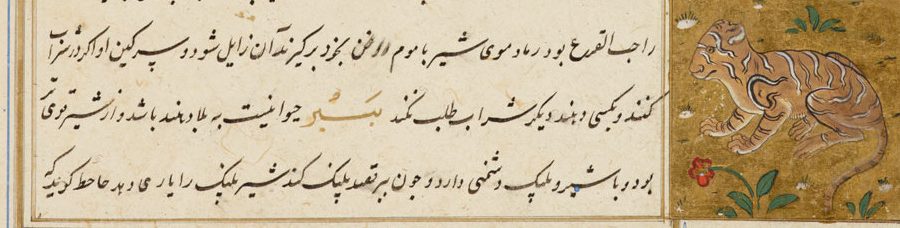 را حب القرع بود رماد موی شیر با موم و روغن بخود برگیرند آن زایل شود و سرکین او اگر در شراب
کنند و بکسی دهند دیگر شراب طلب نکند ببر حیوانیست به بلاد هند باشد و از شیر قوی‌تر
بود و با شیر و پلنک دشمنی دارد و جون ببر قصد پلنک کند شیر پلنک را یاری دهد جاحظ کوید که